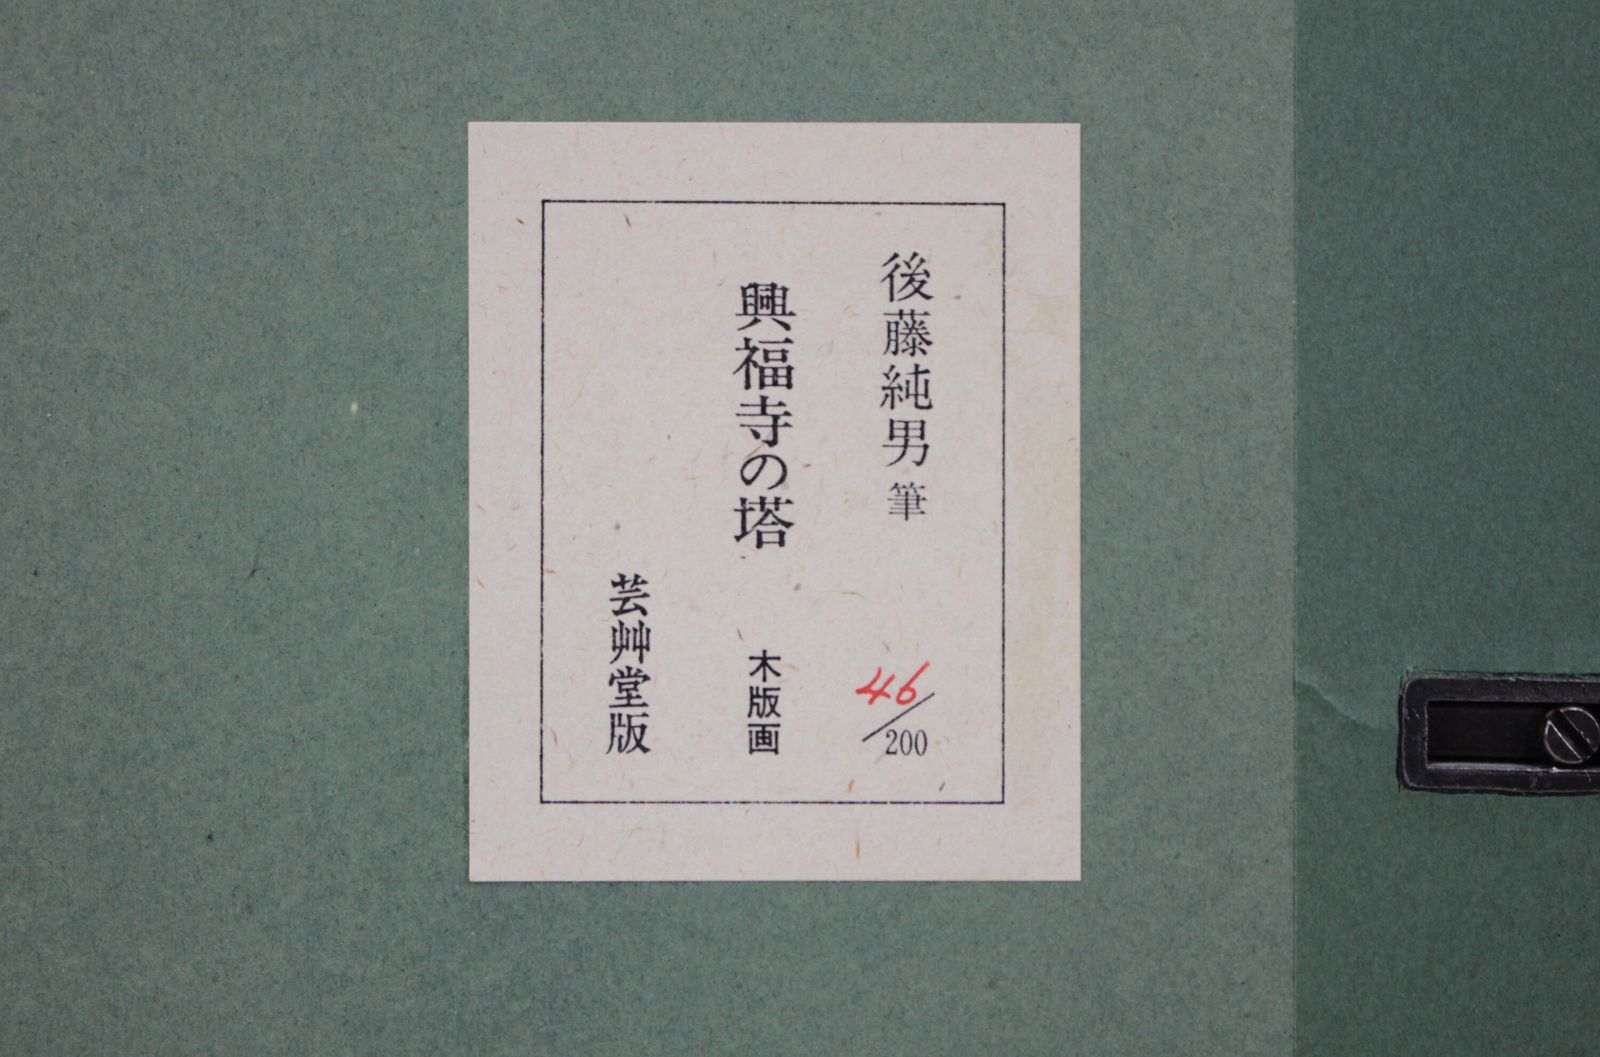 後藤純男筆
46/200
興福寺の塔
木版画
芸艸堂版